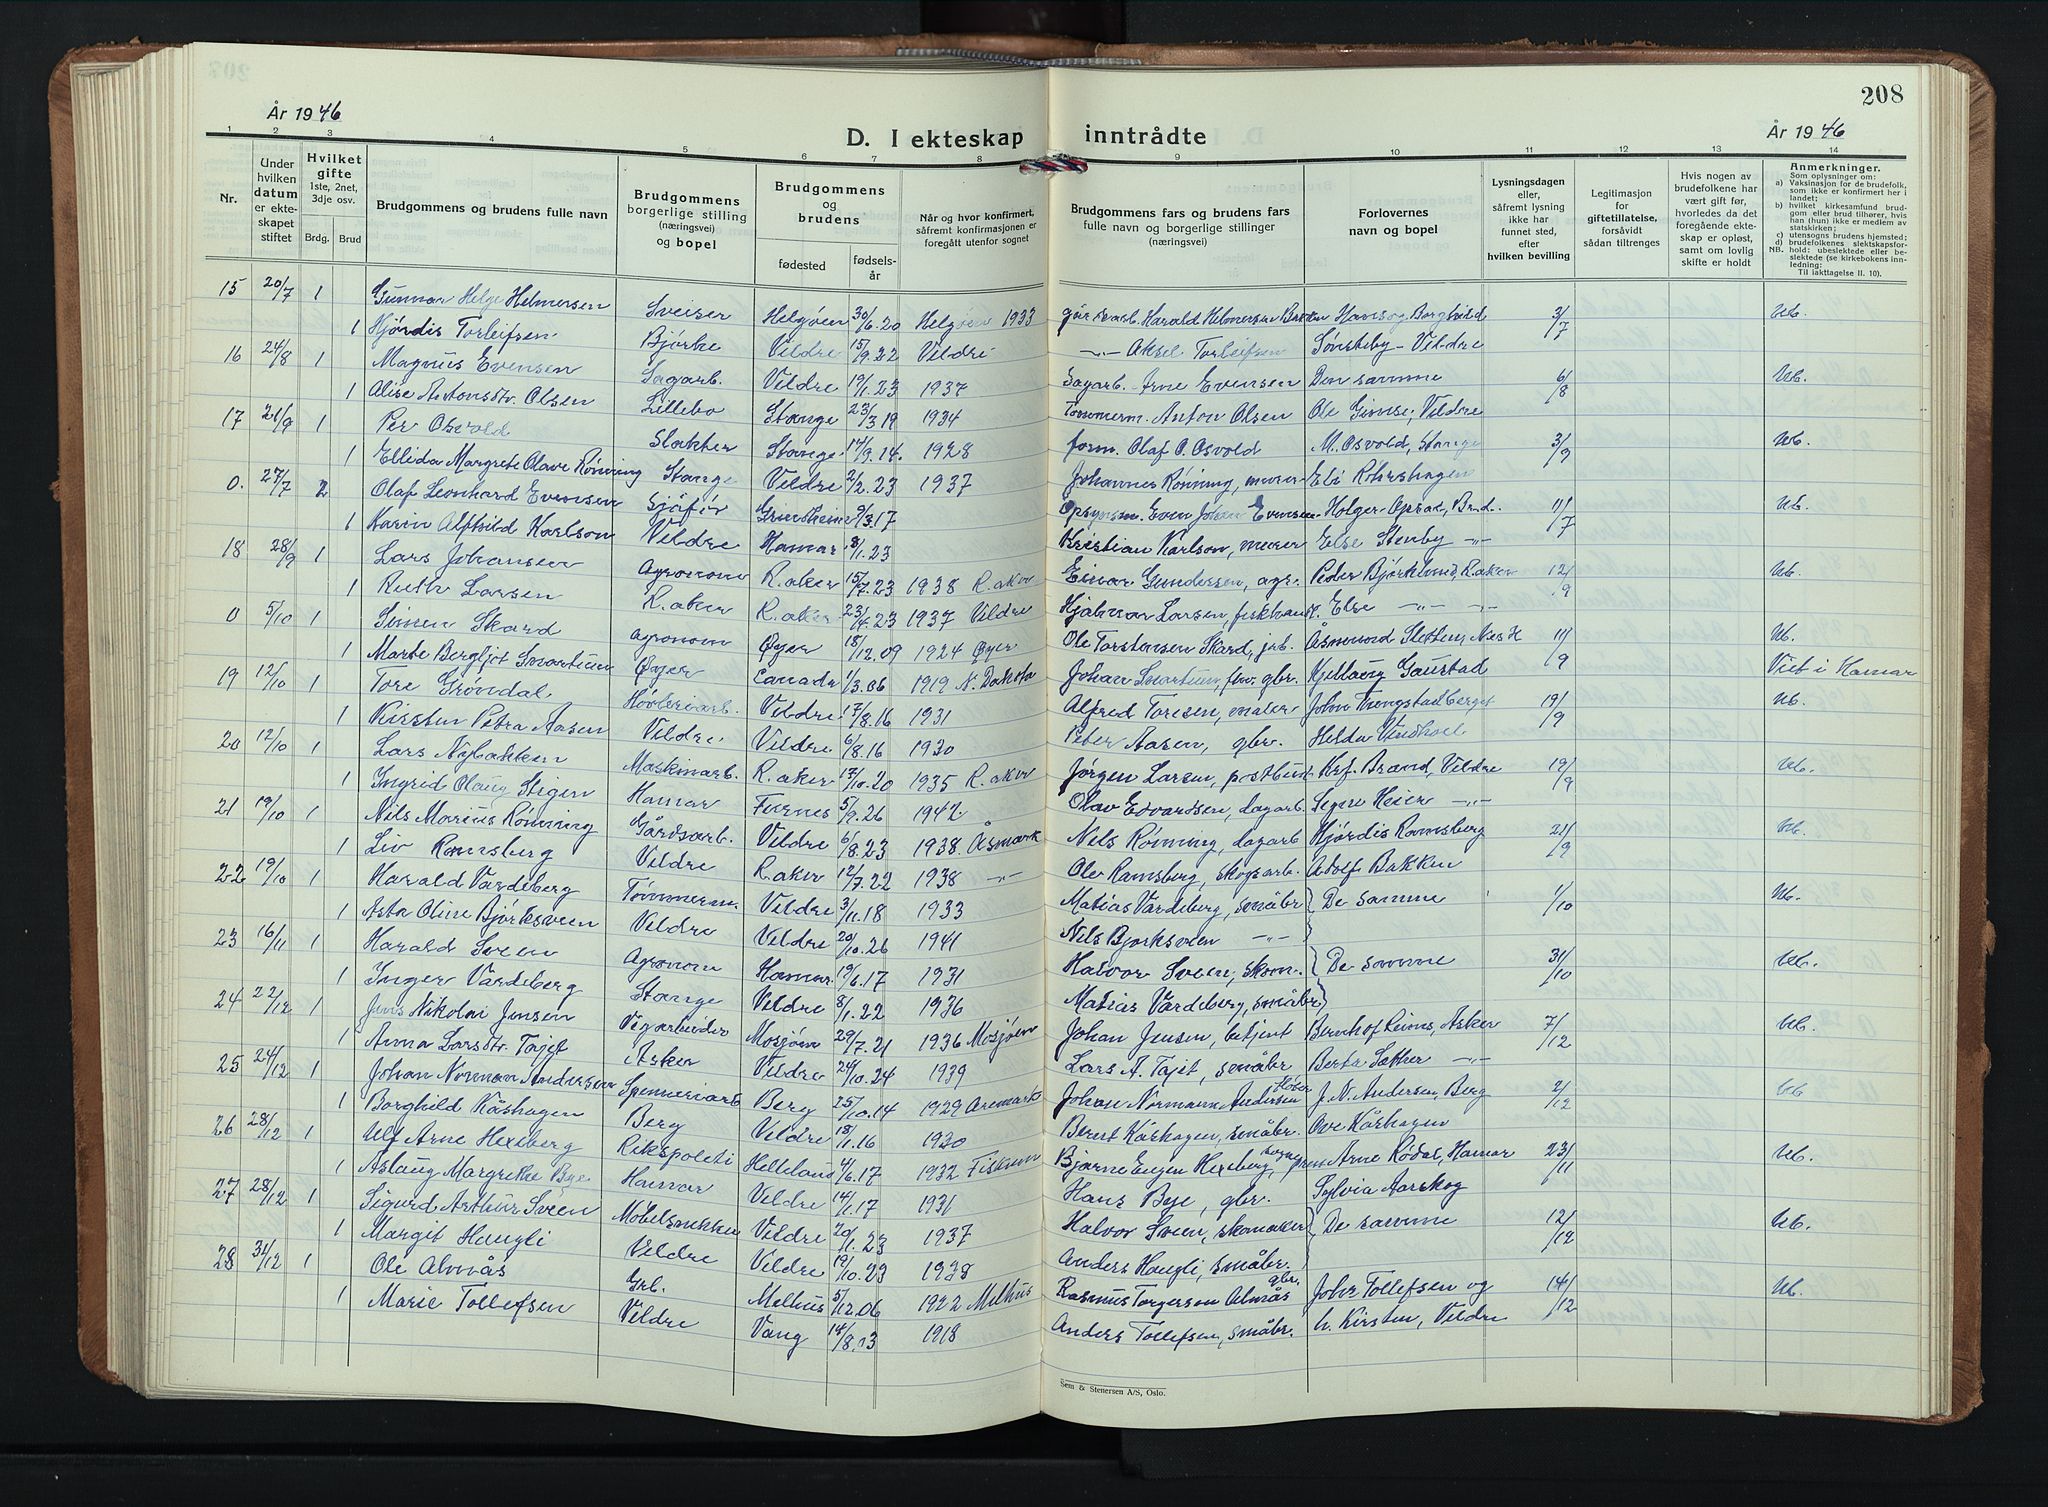 208
År 1946
D. I ekteskap inntrådte
År 1946
1 2 3 4 5 6 7 8 9 10 11 12 13 14
Nr.
Under hvilken datum er ekteskapet stiftet
Hvilket gifte 1ste, 2net, 3dje osv.
Brdg. Brud
Brudgommens og brudens fulle navn
Brudgommens borgerlige stilling (næringsvei) og bopel
Brudgommens og brudens
fødested
fødselsår
Når og hvor konfirmert, såfremt konfirmasjonen er foregått utenfor sognet
Brudgommens fars og brudens fars fulle navn og borgerlige stillinger (næringsvei)
Forlovernes navn og bopel
Lysningsdagen eller, såfremt lysning ikke har funnet sted, efter hvilken bevilling
Legitimasjon for giftetillatelse, forsåvidt sådan tiltrenges
Hvis nogen av brudefolkene har vært gift før, hvorledes da det foregående ekteskap er opløst, samt om lovlig skifte er holdt
Anmerkninger.
Som oplysninger om:
a) Vaksinasjon for de brudefolk, som ikke er konfirmert her i landet;
b) hvilket kirkesamfund brudgom eller brud tilhører, hvis han (hun) ikke er medlem av statskirken;
c) utensogns brudens hjemsted;
d) brudefolkenes slektskapsforhold: ubeslektede eller beslektede (se kirkebokens innledning:
NB. Til iakttagelse II. 10).
15 20/7 1 Gunnar Helge Helmersen Sveiser Helgøen 30/6.20 Helgøen 1933 Harald Helmersen Bakken Hans og Borghild 3/7 Ub.
1 Hjørdis Torleifsen Bjørke Veldre 15/9.22 Veldre -"- Aksel Torleifsen Sønsteby - Veldre
16 24/8 1 Magnus Evensen Sagarb. Veldre 19/1.23 1937 Sagarb. Arne Evensen Den samme 6/8 Ub.
1 Alise Antonsdtr. Olsen Lillebo Stange 23/3.19 1934 Tømmerm. Anton Olsen Ole Gimse, Veldre
17 21/9 1 Per Osvold Slakter Stange 14/9.14. 1928 form. Olaf O. Osvold M. Osvold, Stange 3/9 Ub.
1 Ellida Margrete Olave Rönning Stange Veldre 2/2.23 1937 Johannes Rønning, murer
0. 27/7 2 Olaf Leonhard Evensen Sjåfør Grundheim 9/3.17 Opsynsm. Even Johan Evensen Holger Opsad, Br.d. 11/7 Ub.
1 Karin Alfhild Karlson Veldre Hamar 8/1.23 Kristian Karlson, murer Else Stenby -"-
18 28/9 1 Lars Johansen Agronom R.aker 15/7.23 1938 R.aker Einar Gundersen, agr. Peder Bjørklund, R.aker 12/9 Ub.
1 Ruth Larsen R.aker R.aker 23/4.23 1937 Veldre Hjalmar Larsen, fiskhand. Else -"- -"-
0 5/10 1 Simen Skard Agronom Øyer 18/12.09 1924 Øyer Ole Torstensen Skard, Åsmund Sletten, Nes H 11/9 Ub.
1 Marte Bergljot Smartun Øyer Canada 1/3.06 1919 N. Dakota Johan Smartun, fhv. gbr. Kjellaug Gaustad Viet i Hamar
19 12/10 1 Tore Grøndal Høvleriarb. Veldre 17/8.16 1931 Alfred Toresen, maler John Tingstadberget 19/9 Ub.
1 Kirsten Petra Aasen Veldre Veldre 6/8.16 1930 Peter Aasen, gbr. Helda Vindhol
20 12/10 1 Lars Nybakken Maskinarb. R.aker 17/10.20 1935 R.aker Jørgen Larsen, postbud Krf. Brand, Veldre 19/9 Ub.
1 Ingrid Olaug Stigen Hamar Furnes 5/9.26 1942 Olav Edvardsen, dagarb. Signe Heier -"-
21 19/10 1 Nils Marius Rönning Gårdsarb. Veldre 6/8.23 1938. Åsmark Nils Rønning, dagarb Hjørdis Ramsberg 21/9 Ub.
1 Liv Ramsberg Veldre R.aker 12/7.22 1938 -"- Ole Ramsberg, skogsarb. Adolf Bakken
22 19/10 1 Harald Vardeberg Tømmerm. Veldre 3/11.18 1933 Matias Vardeberg, småbr De samme 1/10 Ub.
1 Asta Oline Bjørksveen Veldre Veldre 20/10.26 1941 Nils Bjørksveen -"-
23 16/11 1 Harald Sveen Agronom Hamar 19/6.17 1931 Halvor Sveen, skom. De samme 31/10 Ub.
1 Inger Vardeberg Stange Veldre 8/1.22 1936 Matias Vardeberg, småbr
24 22/12 1 Jens Nikolai Jensen Vegarbeider Mosjøen 29/7.21 1936 Mosjøen Johan Jensen, betjent Bernhof Reims, Asker 7/12 Ub.
1 Anna Larsdtr. Tajet Asker Veldre 24/10.24 1939 Lars A. Tajet, småbr Berta Sæther -"-
25 24/12 1 Johan Norman Andersen Spenneriarb Berg 25/10.14 1929 Aremark Johan Normann Andersen fløter J. N. Andersen, Berg 2/12 Ub
1 Borghild Kåshagen Berg Veldre 18/1.16 1930 Bernt Kåshagen, småbr. Ove Kåshagen
26 28/12 1 Ulf Arne Hexeberg Rikspoleti Helleland 4/6.17 1932 Fiskum Bjarne Eugen Hexeberg, sogneprest Arne Rödal, Hamar 23/11 Ub.
1 Aslaug Margrethe Bye Hamar Veldre 14/1.17 1931 Hans Bye, gbr. Sylvia Aarskog
27 28/12 1 Sigurd Arthur Sveen Møbelsnekker Veldre 20/1.23 1937 Halvor Sveen, skomaker De samme 12/12 Ub.
1 Margit Haugli Veldre Veldre 19/10.23 1938 Anders Haugli, småbr.
28 31/12 1 Ole Almås Grb. Melhus 5/12.06 1922 Melhus Rasmus Torgerson Almås gbr. John Tollefsen og 14/12 Ub.
1 Marie Tollefsen Veldre Vang 14/8.03 1918 Anders Tollefsen, småbr. h. Kirsten, Veldre
Sem & Stenersen A/S, Oslo.